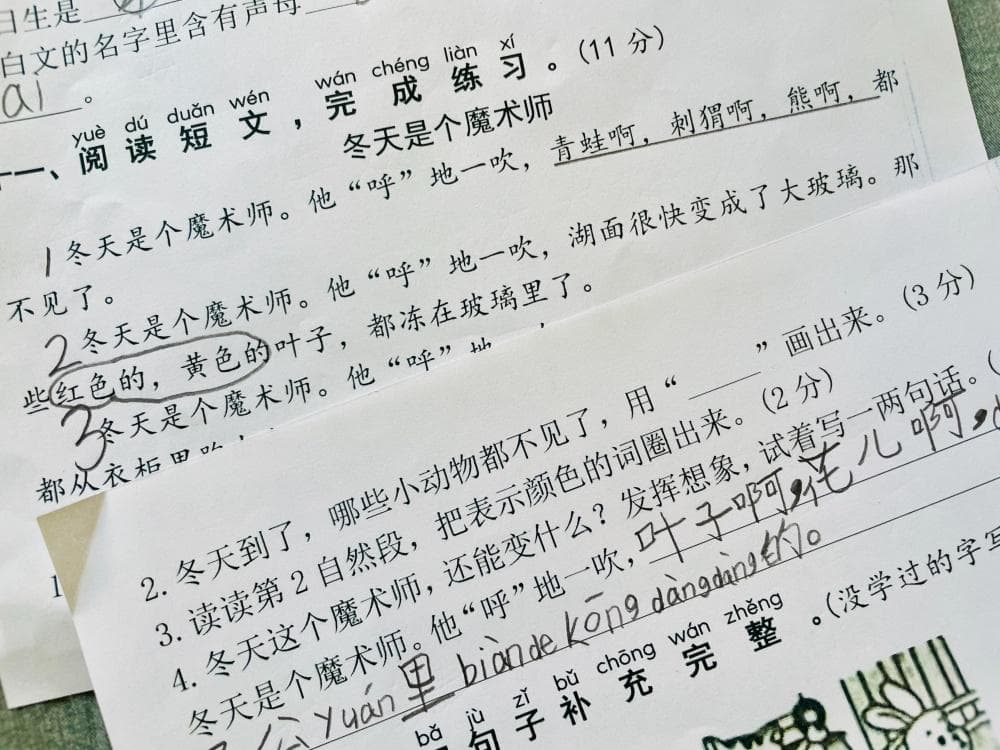 日生是
白文的名字里含有声母
ai。
yuè dú duǎn wén wán chéng liàn xí
十一、阅读短文，完成练习。(11 分)
冬天是个魔术师
1 冬天是个魔术师。他“呼”地一吹，青蛙啊，刺猬啊，熊啊，都
不见了。
2 冬天是个魔术师。他“呼”地一吹，湖面很快变成了大玻璃。那
些红色的，黄色的叶子，都冻在玻璃里了。
3 冬天是个魔术师。他“呼”地
都从衣柜里跑
1
2. 冬天到了，哪些小动物都不见了，用“______”画出来。(3 分)
3. 读读第 2 自然段，把表示颜色的词圈出来。(2 分)
4. 冬天这个魔术师，还能变什么？发挥想象，试着写一两句话。(
冬天是个魔术师。他“呼”地一吹，叶子啊，花儿啊，
公yuán里biàndekōngdàngdàng的。
bǎ jù zǐ bǔ chōng wán zhěng
句子补充完整。(没学过的字写